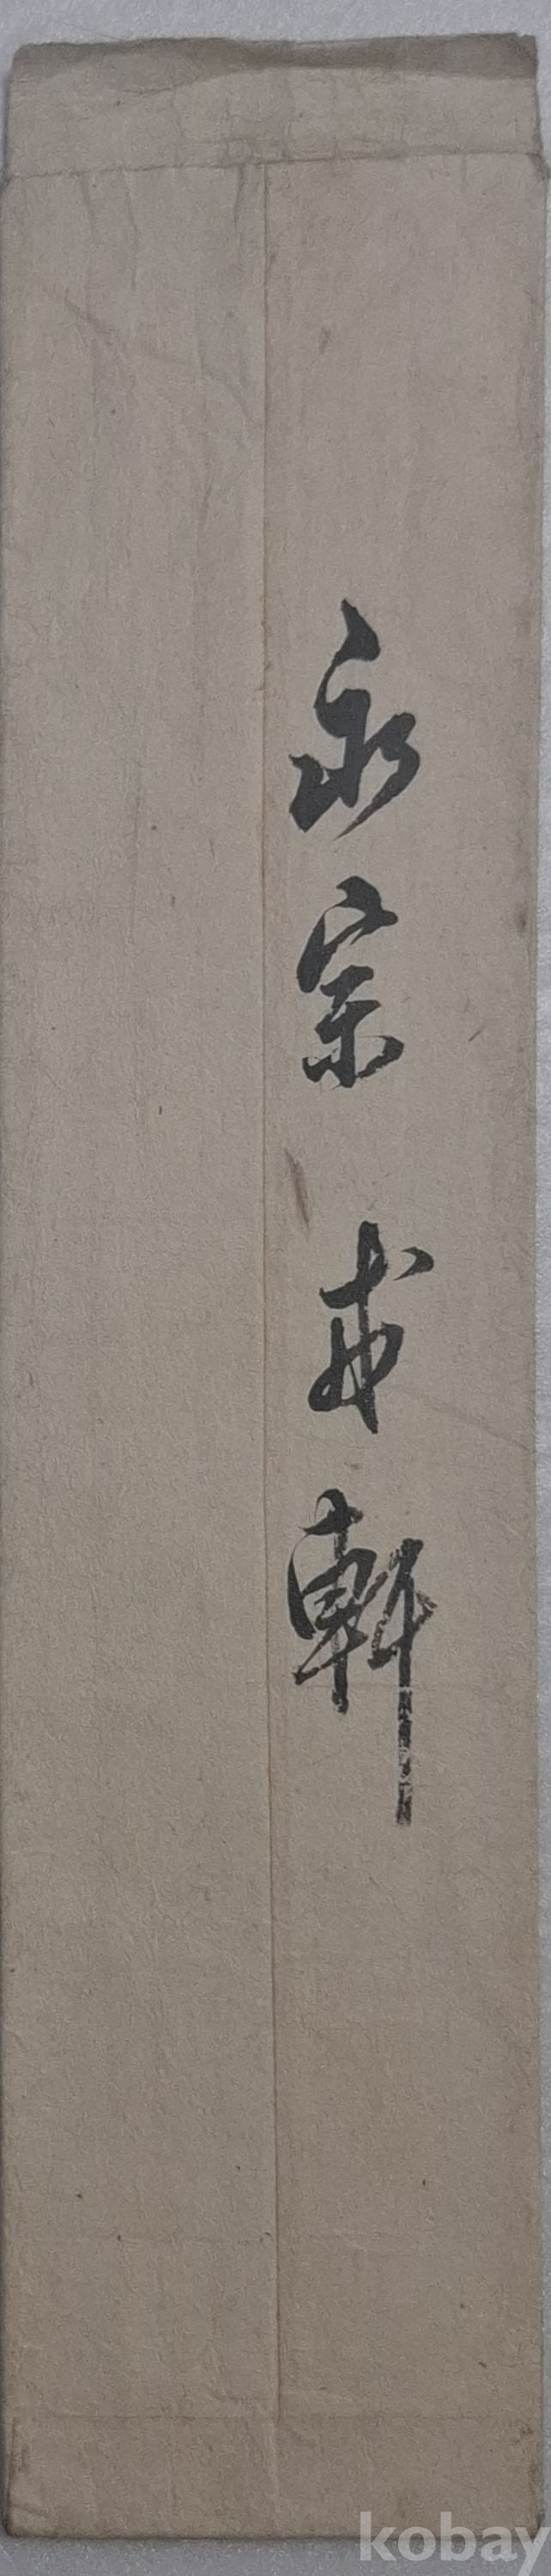 永宗 戒軒
kobay